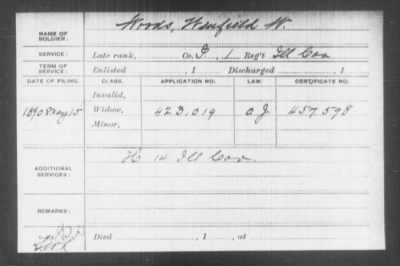 NAME OF SOLDIER: Woods, Winfield W.
SERVICE: Late rank, Co. I, L Reg't Ill Cav
TERM OF SERVICE: Enlisted , 1 Discharged , 1
DATE OF FILING. CLASS. APPLICATION NO. LAW. CERTIFICATE NO.
Invalid,
1890 May 15 Widow, 423.019 O.J 457.598
Minor,
ADDITIONAL SERVICES: H. 14 Ill Cav.
REMARKS:
Died , 1 , at